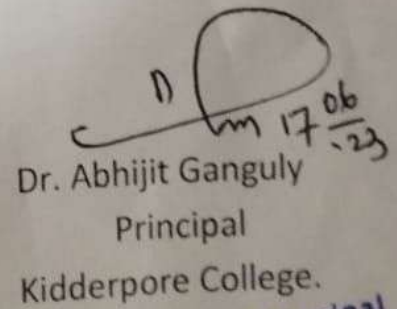 17 06 .23
Dr. Abhijit Ganguly
Principal
Kidderpore College.